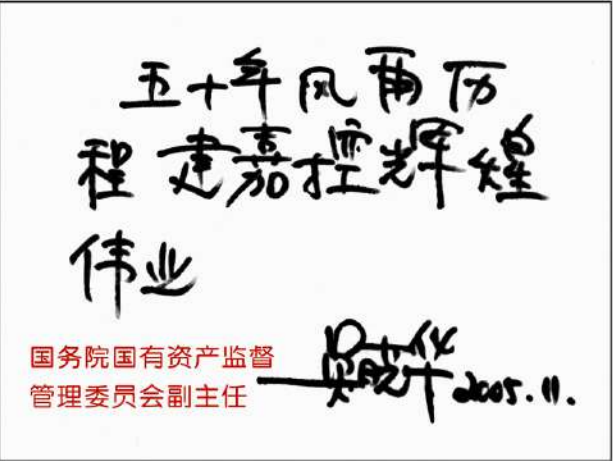 五十年风雨历
程 建嘉控辉煌
伟业
国务院国有资产监督
管理委员会副主任
2005.11.